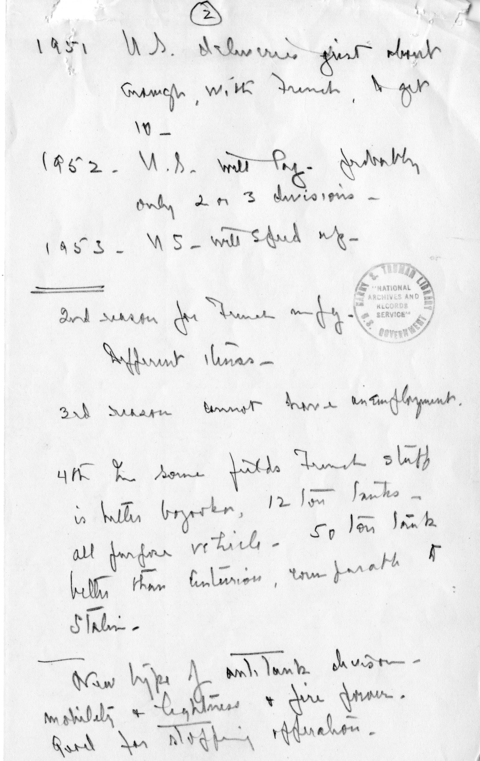 2
1951 U.S. deliveries just about
enough, with French, to get
10 -
1952 - U.S. will lag - probably
only 2 or 3 divisions -
1953 - US - will speed up -
HARRY S. TRUMAN LIBRARY
"NATIONAL
ARCHIVES AND
RECORDS
SERVICE"
U.S. GOVERNMENT
2nd reason for French mfg -
Different items -
3rd reason cannot have unemployment.
4th In some fields French stuff
is better bazooka, 12 ton tanks -
all purpose vehicle - 50 ton tank
better than Centurion, comparable to
Stalin -
New type of antitank division -
mobility & lightness & fire power.
Good for stopping operation -